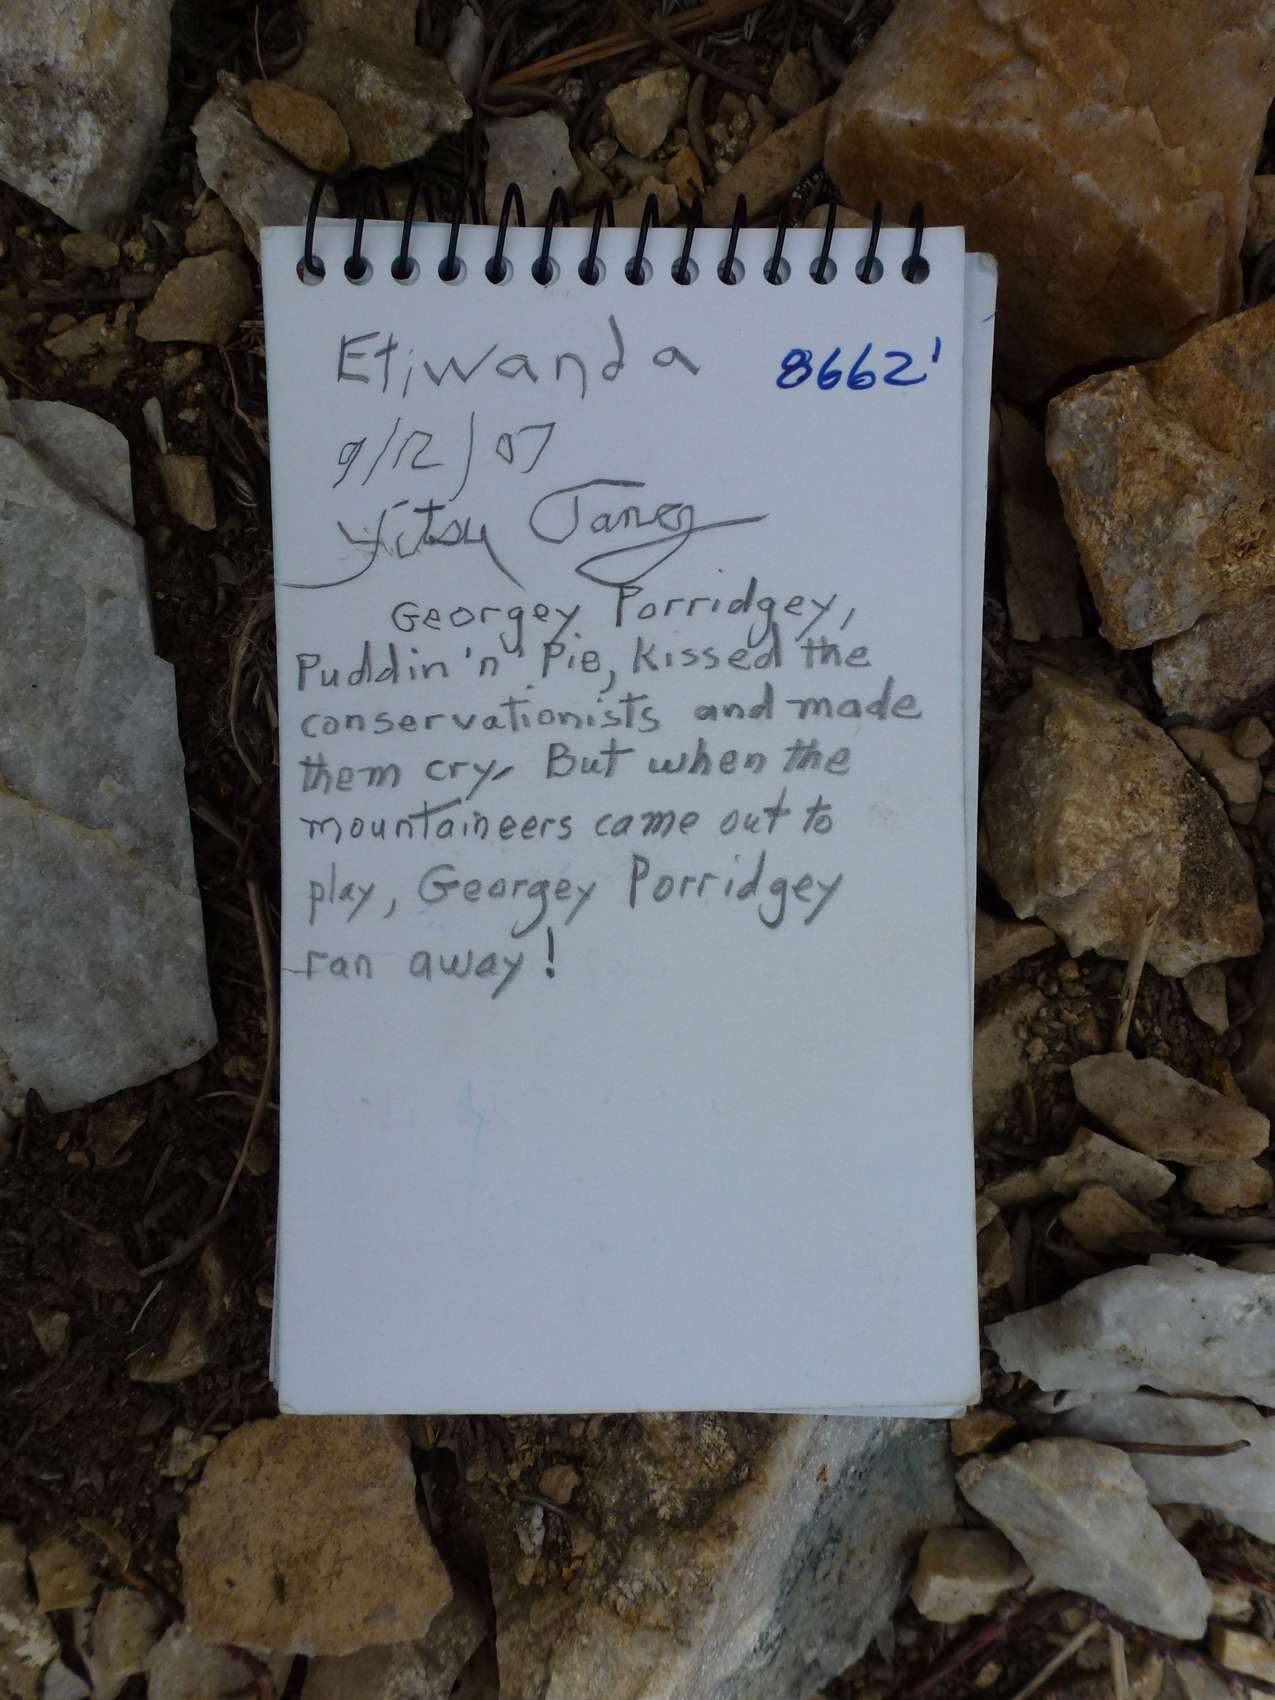 Etiwanda 8662'
9/12/07
Georgey Porridgey,
Puddin 'n' Pie, kissed the
conservationists and made
them cry. But when the
mountaineers came out to
play, Georgey Porridgey
ran away!